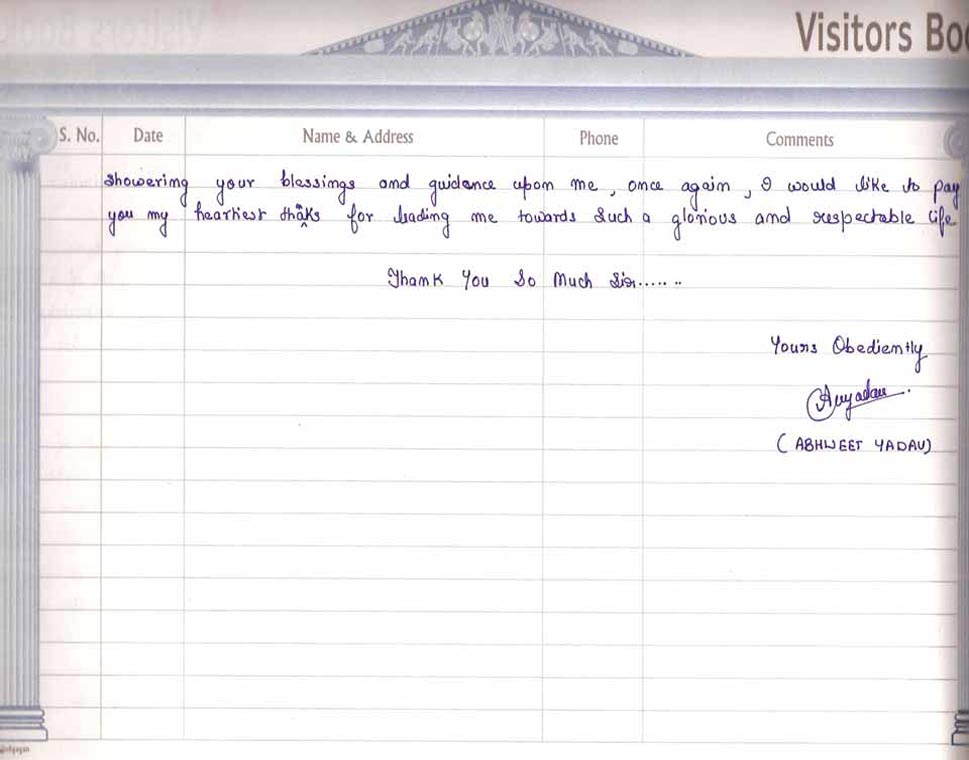 Visitors Boo
S. No. Date Name & Address Phone Comments
showering your blessings and guidance upon me, once again, I would like to pay
you my heartiest thanks for leading me towards such a glorious and respectable life
Thank You So Much Sir......
Yours Obediently
(ABHIJEET YADAV)